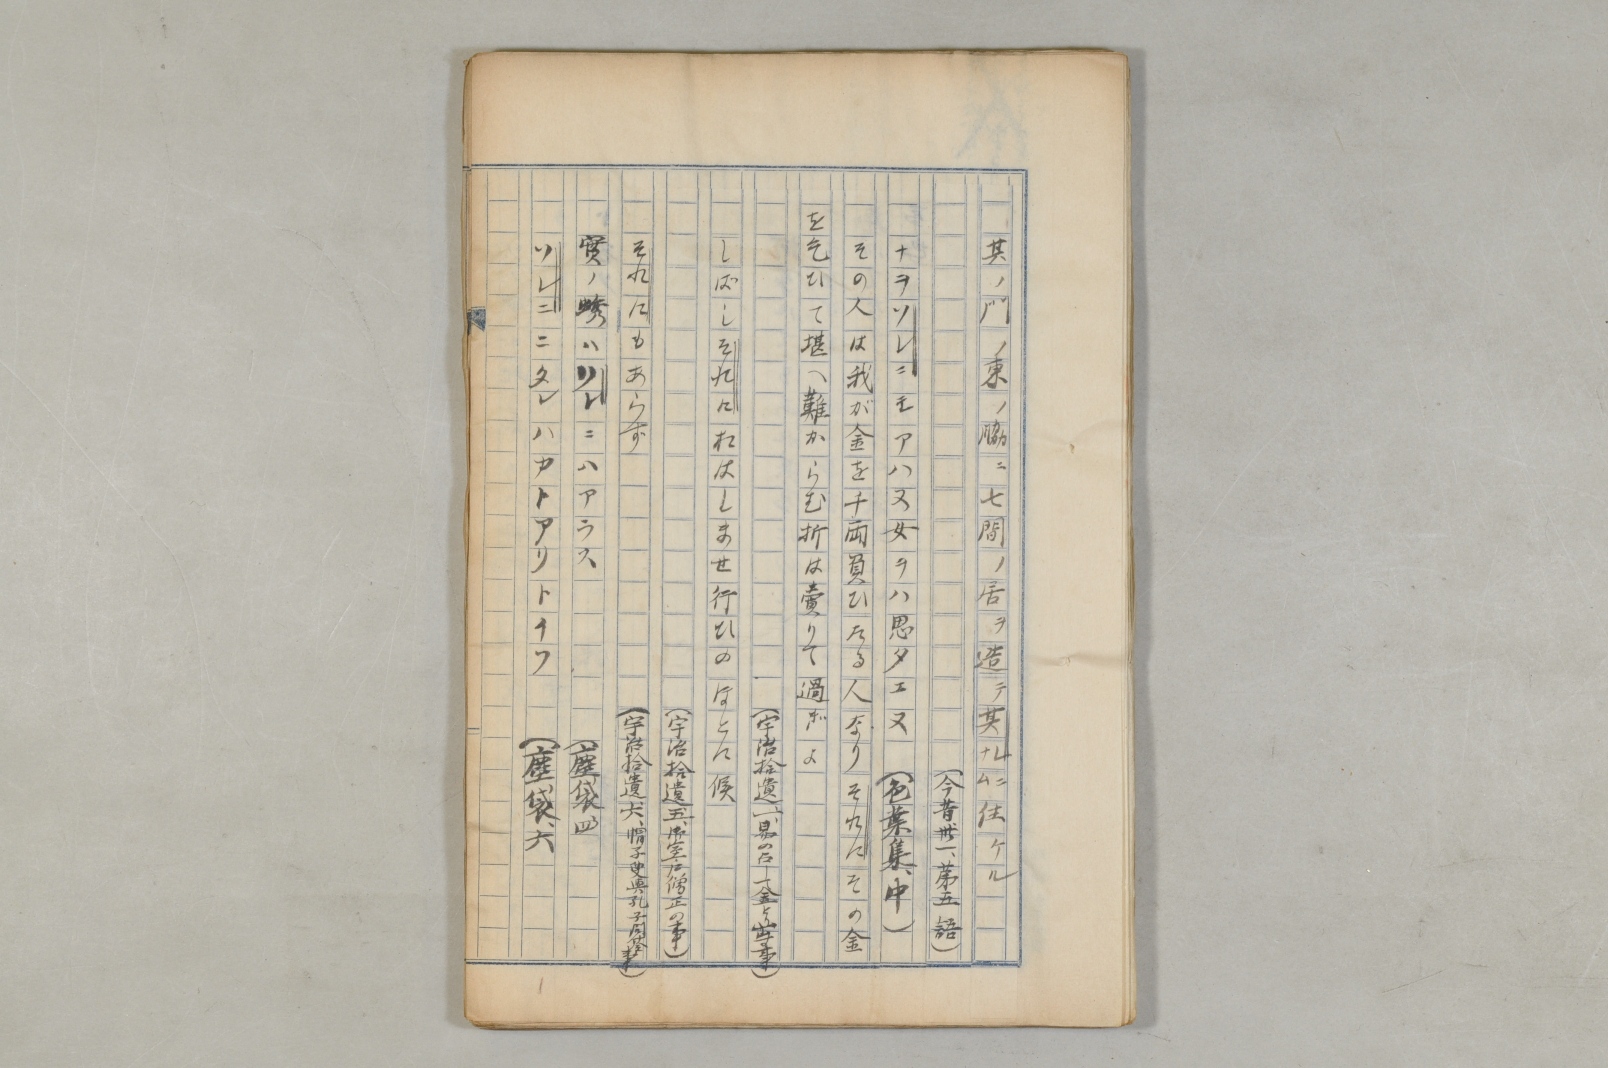 其ノ門ノ東ノ脇ニ七間ノ居ヲ造テ其ナムニ住ケル
(今昔卅一、第五語)
ナヲソレニモアハ又女ヲハ思タエヌ (色葉集、中)
その人は我が金を千両負ひたる人なりそれにその金
を乞ひて堪へ難からむ折は賣りて過ぎよ
(宇治拾遺一、
しばしそれにおはしませ行ひのほとに候
(宇治拾遺五、御室戸僧正の事)
それにもあらず (宇治拾遺六、帽子叟與孔子問答事)
實ノ ハソレニハアラス (塵袋四
ソレニニタレハカトアリトイフ (塵袋、六